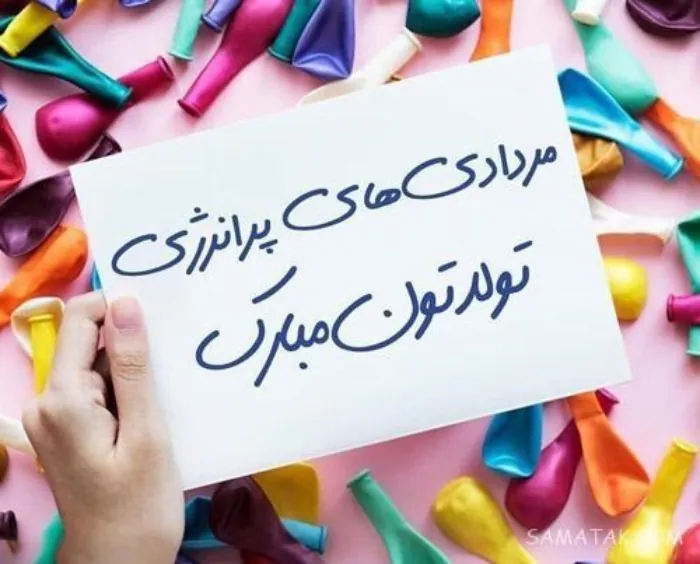 مردادی‌های پرانرژی
تولدتون مبارک
SAMATAK.COM